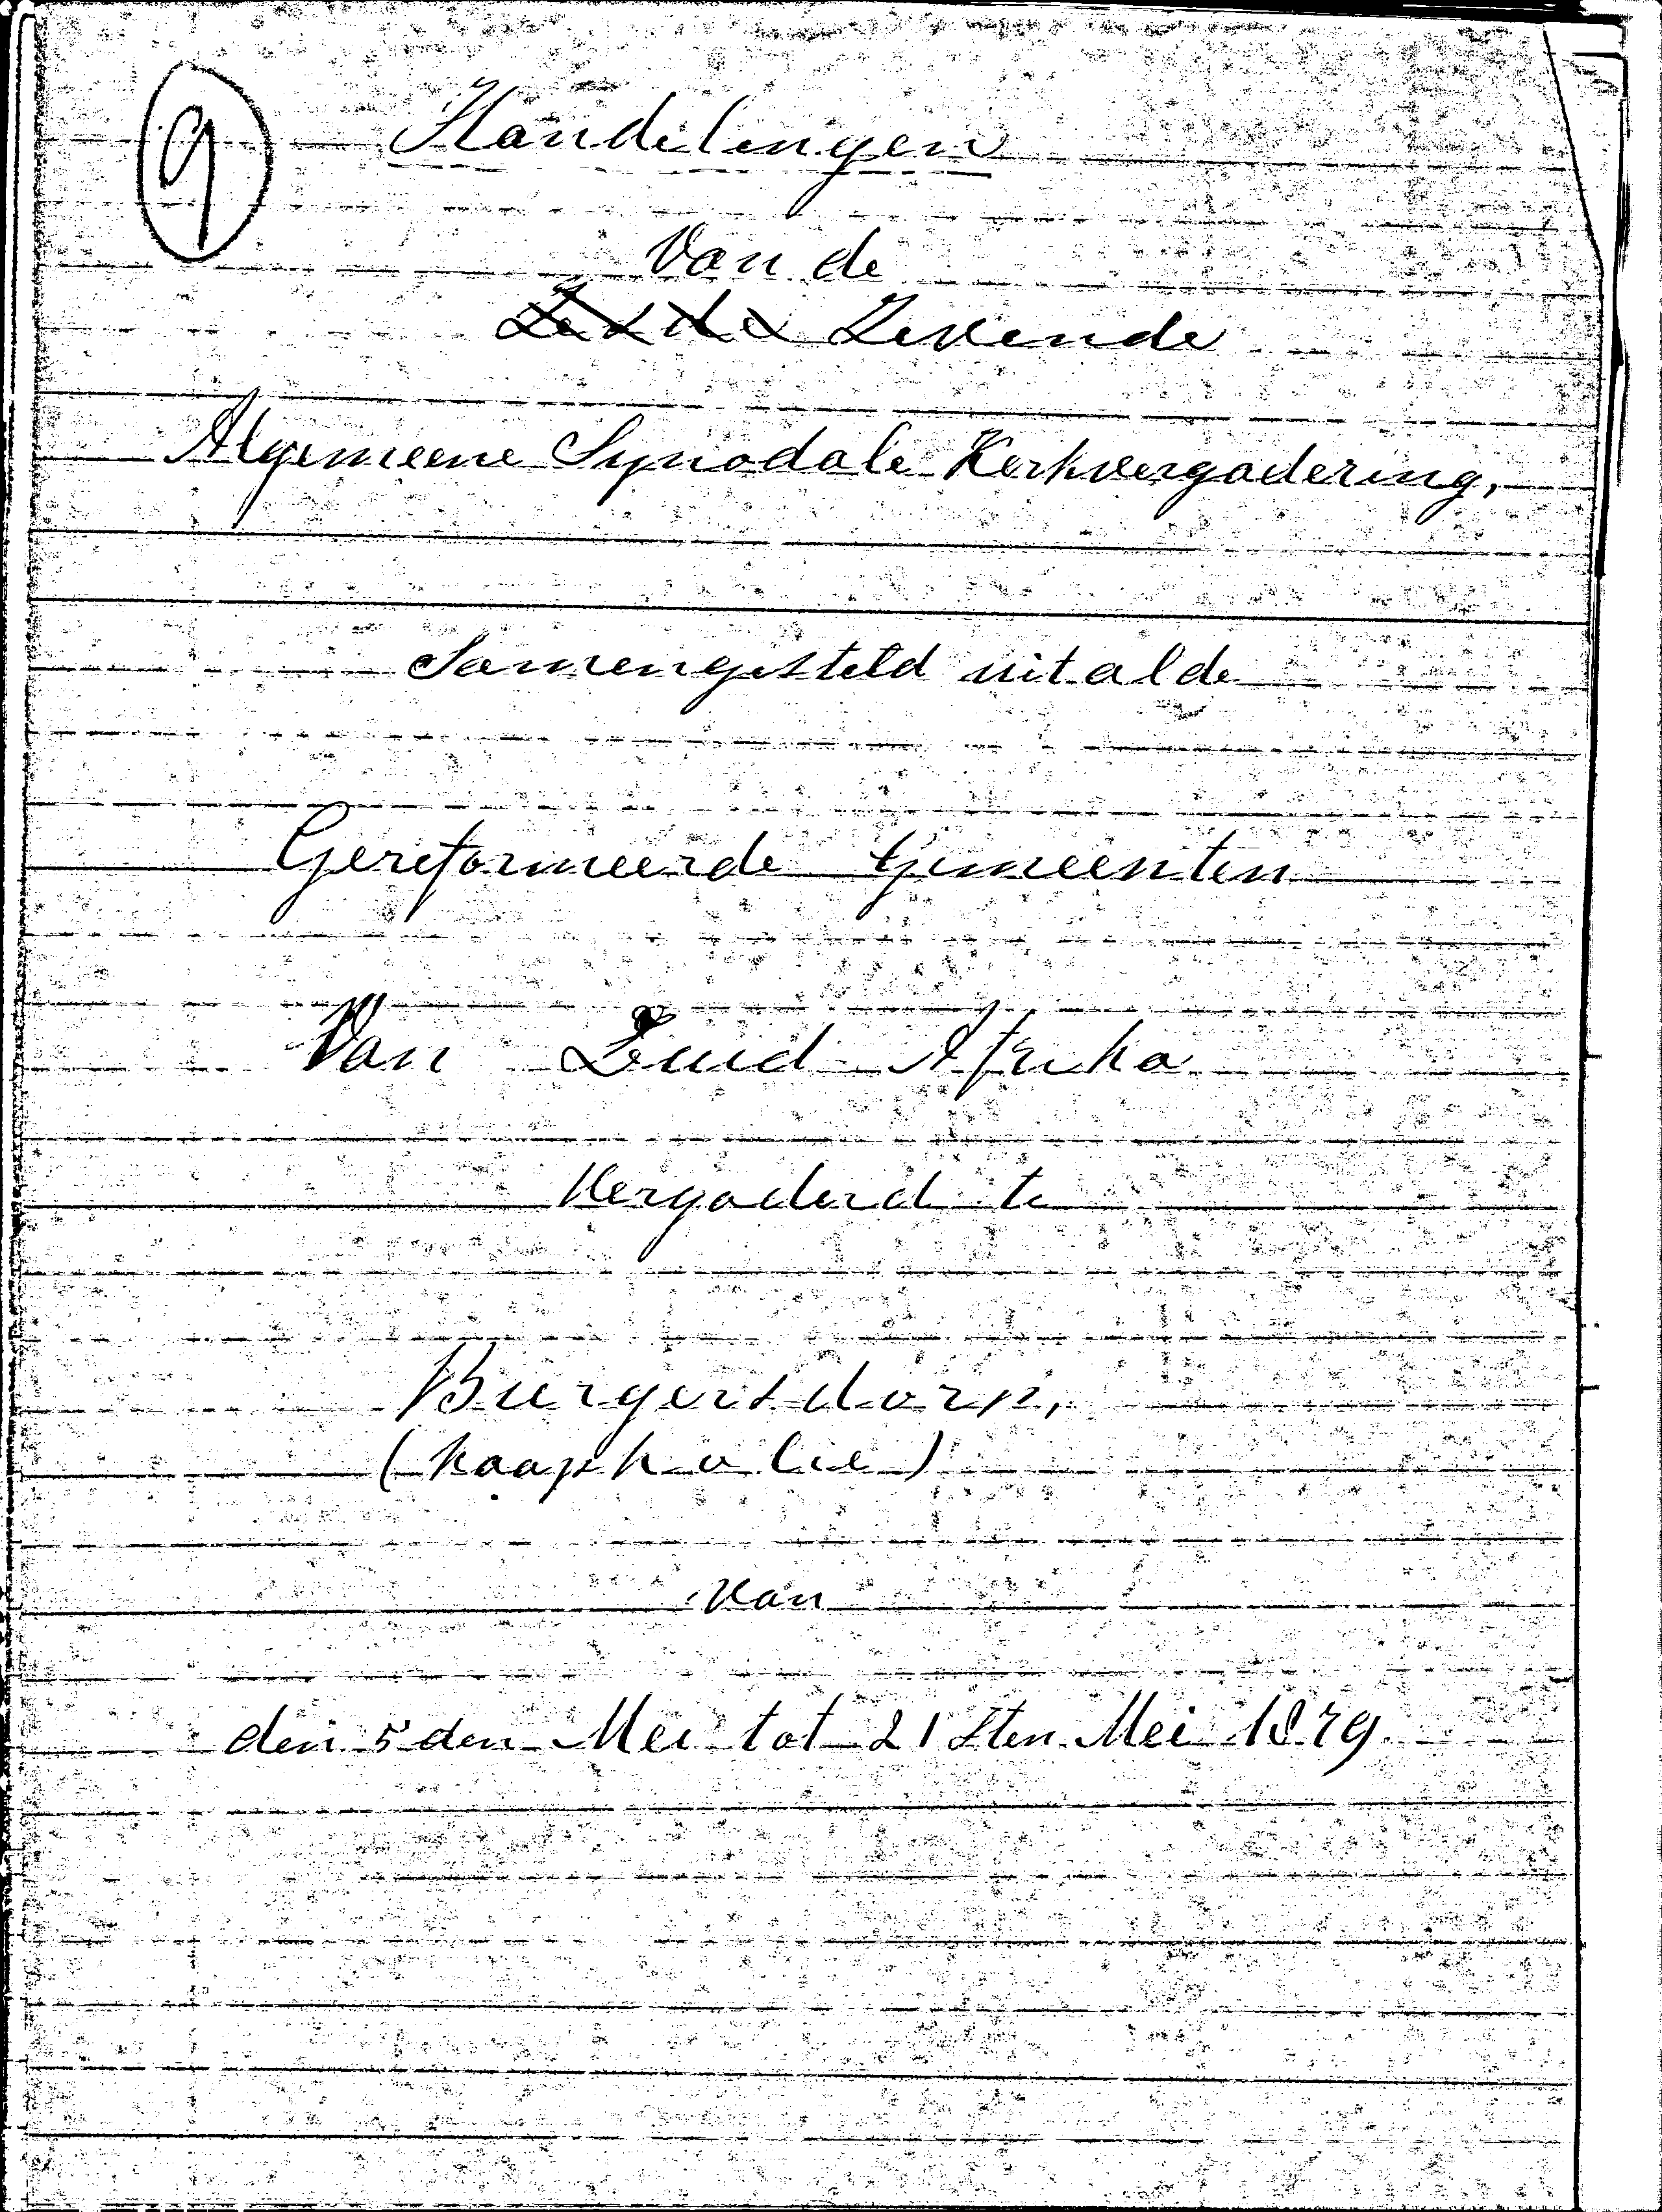 9
Handelingen
Van de
Zesde Zevende
Algemeene Synodale Kerkvergadering,
Samengesteld uit al de
Gereformeerde Gemeenten
Van Zuid Afrika
Vergaderd te
Burgersdorp,
(Kaapkolie)
van
den 5den Mei tot 21sten Mei 1879.